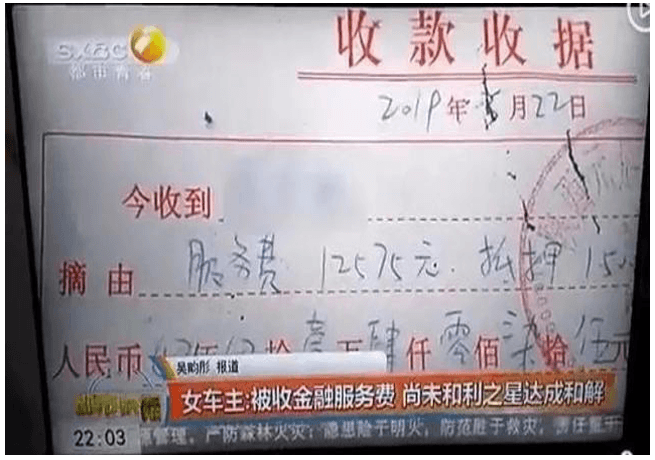 SXBC
都市青春
收款收据
2019年 月22日
今收到
摘由 服务费 12575元. 抵押 150
人民币 拾壹万肆仟零佰柒拾伍元
吴昀彤 报道
女车主:被收金融服务费 尚未和利之星达成和解
22:03 管理，严防森林火灾；隐患险于明火，防范胜于救灾，责任重于